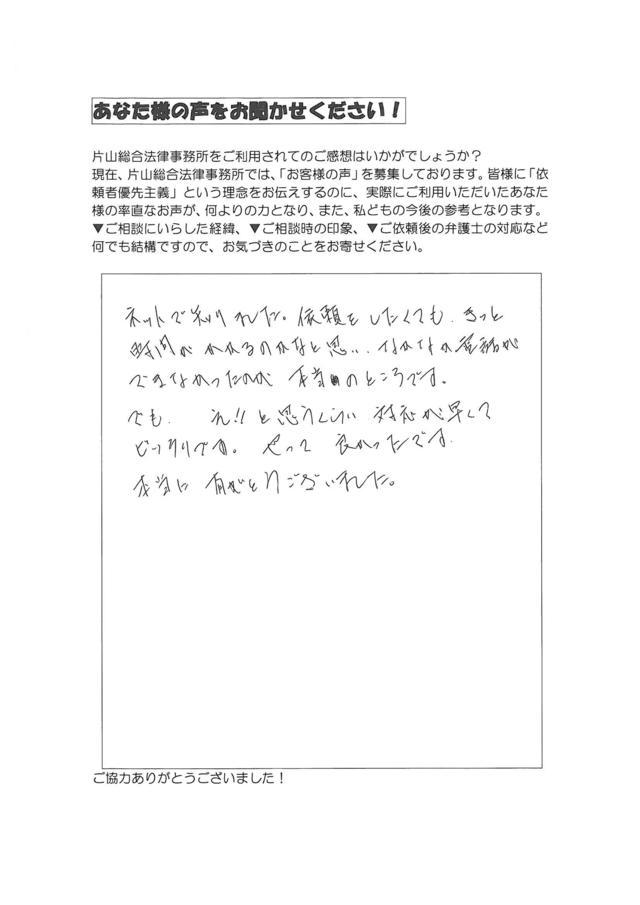 あなた様の声をお聞かせください!
片山総合法律事務所をご利用されてのご感想はいかがでしょうか?
現在、片山総合法律事務所では、「お客様の声」を募集しております。皆様に「依
頼者優先主義」という理念をお伝えするのに、実際にご利用いただいたあなた
様の率直なお声が、何よりの力となり、また、私どもの今後の参考となります。
▼ご相談にいらした経緯、▼ご相談時の印象、▼ご依頼後の弁護士の対応など
何でも結構ですので、お気づきのことをお寄せください。
ネットで知りました。依頼をしたくても、きっと
時間がかかるのかなと思い、なかなか電話が
できなかったのが本当のところです。
でも、え!!と思うくらい対応が早くて
びっくりです。やって良かったです。
本当に有がとうございました。
ご協力ありがとうございました!